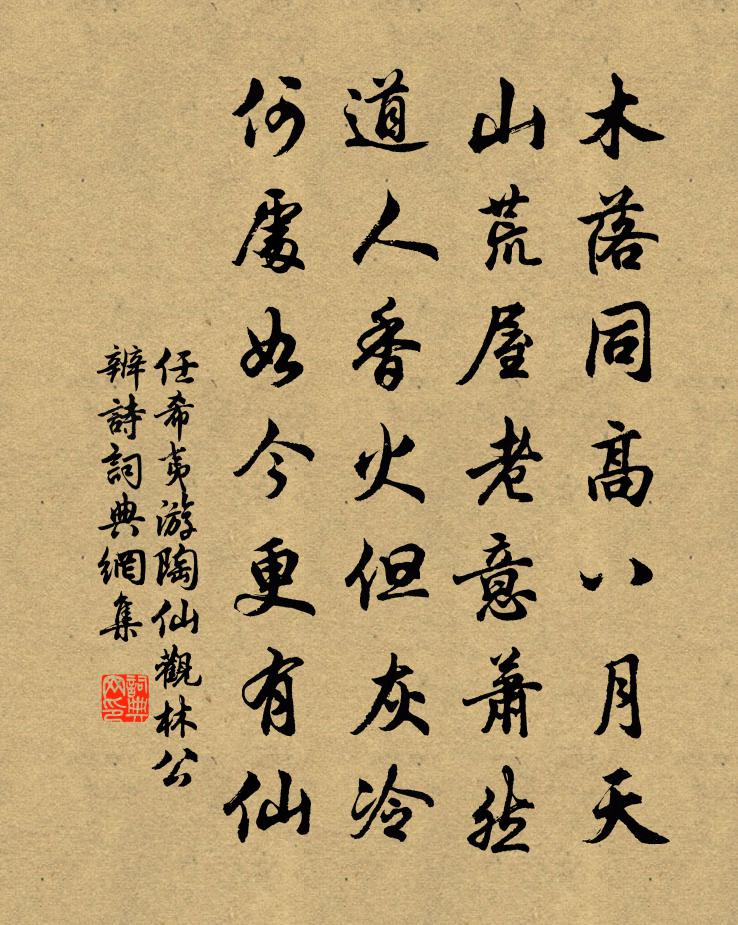 木落同高八月天
山荒屋老意蕭然
道人香火但灰冷
何處如今更有仙
任希夷游陶仙觀林公
辨詩詞典網集
詞典网印